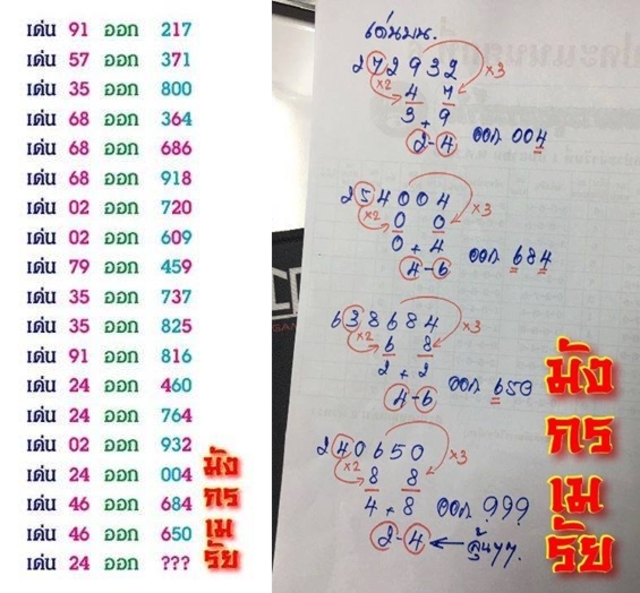 เด่น 91 ออก 217
เด่น 57 ออก 371
เด่น 35 ออก 800
เด่น 68 ออก 364
เด่น 68 ออก 686
เด่น 68 ออก 918
เด่น 02 ออก 720
เด่น 02 ออก 609
เด่น 79 ออก 459
เด่น 35 ออก 737
เด่น 35 ออก 825
เด่น 91 ออก 816
เด่น 24 ออก 460
เด่น 24 ออก 764
เด่น 02 ออก 932
เด่น 24 ออก 004
เด่น 46 ออก 684
เด่น 46 ออก 650
เด่น 24 ออก ???
มัง
กร
เม
รัย
เด่นบน.
272932
×2 ×3
4 7
3 + 9
2-4 ออก 004
254004
×2 ×3
0 0
0 + 4
4-6 ออก 684
638684
×2 ×3
6 8
2 + 2
4-6 ออก 650
240650
×2 ×3
8 8
4 + 8 ออก ???
2-4 ← ลุ้นๆๆ.
มัง
กร
เม
รัย